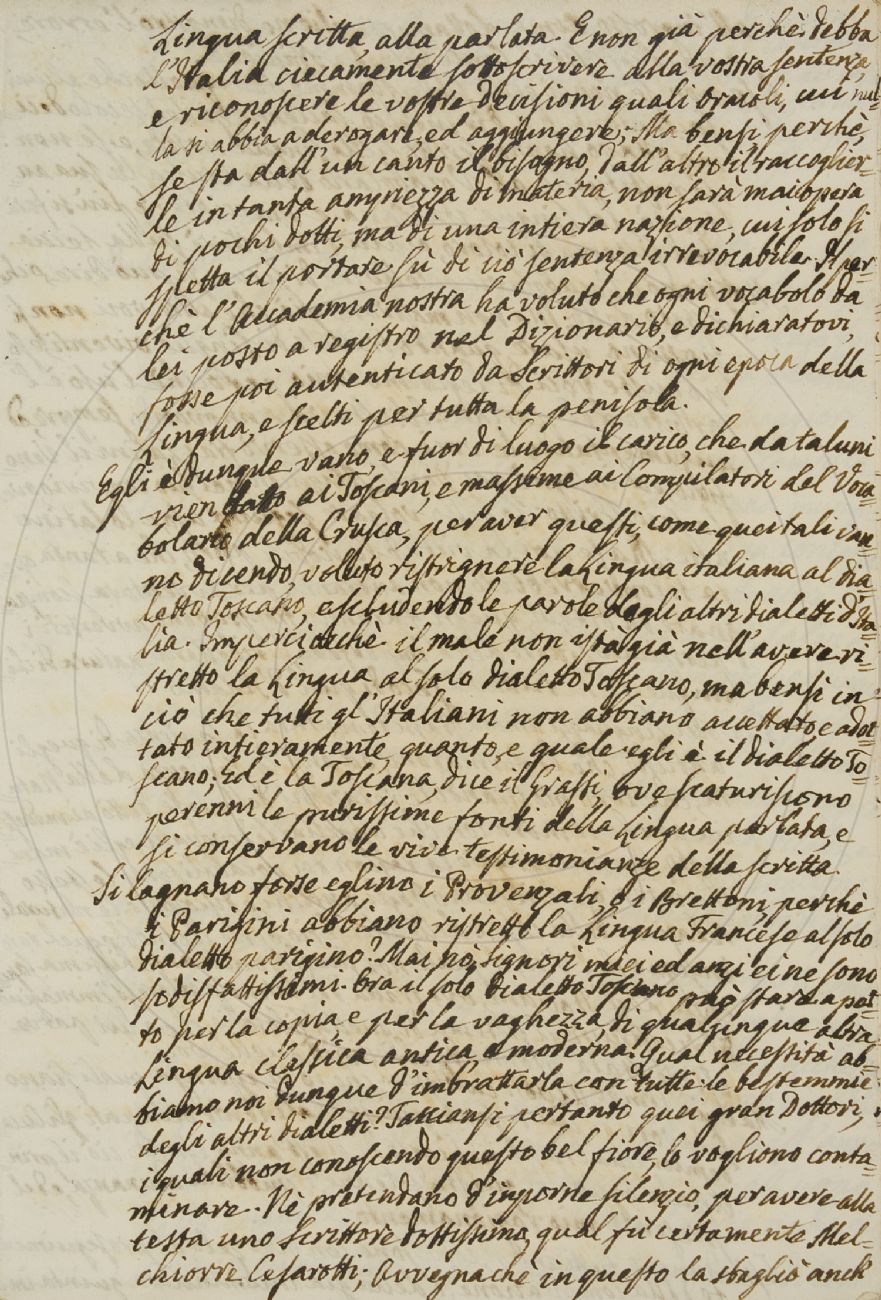 Lingua scritta, alla parlata. E non già perchè debba
l'Italia ciecamente sottoscrivere alla vostra sentenza,
e riconoscere le vostre decisioni quali oracoli, cui nul=
la si abbia a derogare, ed aggiungere; Ma bensì perchè,
se sta dall'un canto il bisogno, dall'altro il raccoglier=
le in tanta ampiezza di materia, non sarà mai opera
di pochi dotti, ma di una intiera nazione, cui solo si
spetta il portare sù di ciò sentenza irrevocabile. Il per=
chè l'Accademia nostra ha voluto che ogni vocabolo da
lei posto a registro nel Dizionario, e dichiaratovi,
fosse poi autenticato da Scrittori di ogni epoca della
Lingua, e scelti per tutta la penisola.
Egli è dunque vano, e fuor di luogo il carico, che da taluni
vien dato ai Toscani, e massime ai Compilatori del Voca=
bolario della Crusca, per aver questi, come quei tali van=
no dicendo, voluto ristrignere la Lingua italiana al dia=
letto Toscano, escludendo le parole degli altri dialetti d'Ita=
lia. Imperciocchè il male non istà già nell'avere ri=
stretto la Lingua al solo dialetto Toscano, ma bensì in
ciò che tutti gl'Italiani non abbiano accettato, e adot=
tato intieramente, quanto, e quale egli è il dialetto To=
scano; Ed è la Toscana, dice il Grassi, ove scaturiscono
perenni le purissime fonti della Lingua parlata, e
si conservano le vive testimonianze della scritta.
Si lagnano forse eglino i Provenzali, o i Brettoni, perchè
i Parigini abbiano ristretto la Lingua Francese al solo
dialetto parigino? Mai nò, signori miei ed anzi ei ne sono
sodisfattissimi. Ora il solo dialetto Toscano può stare a pet=
to per la copia, e per la vaghezza di qualunque altra
Lingua classica antica, e moderna. Qual necessità ab=
biamo noi dunque d'imbrattarla con tutte le bestemmie
degli altri dialetti? Tacciansi pertanto quei gran Dottori,
i quali non conoscendo questo bel fiore, lo vogliono conta=
minare. Nè pretendano d'inporne silenzio, per avere alla
testa uno Scrittore dottissimo, qual fù certamente Mel=
chiorre Cesarotti; Avvegnachè in questo la sbagliò anch